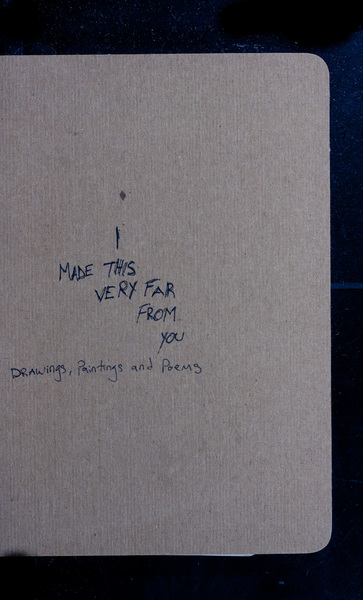 I
MADE THIS
VERY FAR
FROM
YOU
DRAWings, Paintings and Poems